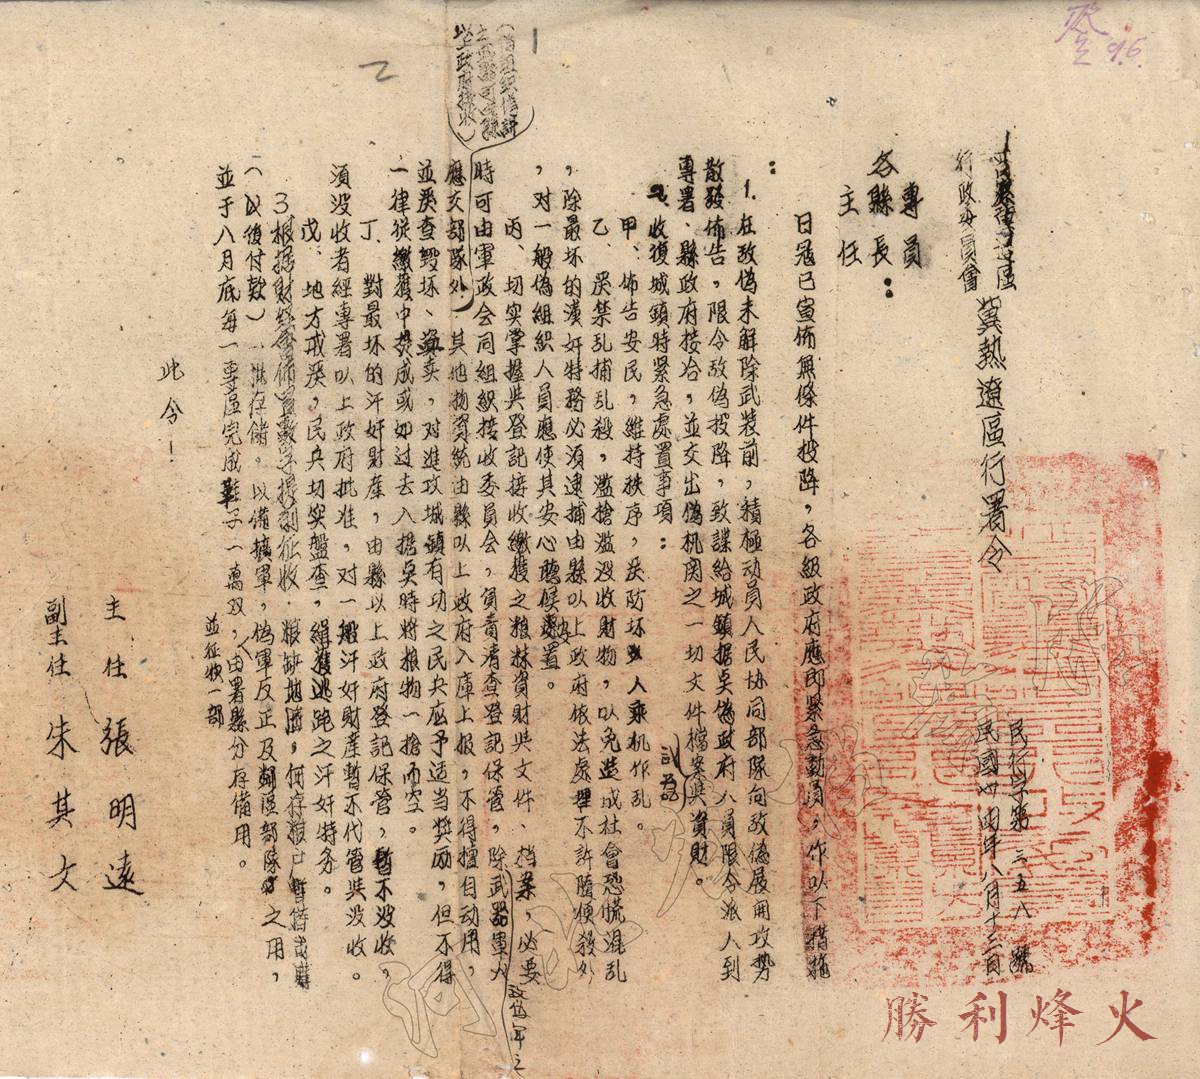 行政委員會
冀熱遼區行署令
民行字第三五八號
民國卅四年八月十三日
專員
各縣長：
主任
日寇已宣佈無條件投降，各級政府應即緊急動員，作以下措施
：
1. 在敌偽未解除武装前，積極动員人民协同部隊向敌偽展開攻势
散發佈告，限令敌偽投降，致諜給城鎮据奌偽政府人員限令派人到
專署、縣政府接洽，並交出偽机関之一切文件檔案與資財。
2. 收復城鎮特緊急處置事項：
甲、佈告安民，維持秩序，严防坏人乘机作乱。
乙、严禁乱捕乱殺，濫搶濫没收財物，以免造成社會恐慌混乱
，除最坏的漢奸特務必須逮捕由縣以上政府依法處理不許隨便殺外
，对一般偽組织人員應使其安心聴候處置。
丙、切实掌握與登記接收繳獲之粮秣資財與文件、档案，必要
時可由軍政会同組织接收委員会，負責清查登記保管，除武器軍火
應交部隊外，其他物資統由縣以上政府入庫上报，不得擅自动用，
並严查毁坏、盗卖，对進攻城鎮有功之民兵应予适当獎励，但不得
一律從繳獲中提成或如过去入据奌時将粮物一搶而空。
丁、對最坏的汗奸財產，由縣以上政府登記保管，暫不没收，
須没收者經專署以上政府批准，对一般汗奸財產暫不代管與没收。
戊、地方戒严，民兵切实盤查，緝獲逃跑之汗奸特务。
（以後付款）
以備擴軍，偽軍反正及部隊之用，
並于八月底每一專區完成鞋子一萬双，由署縣分存備用。
並征收一部
此令！
主任 張明遠
副主任 朱其文
勝利烽火